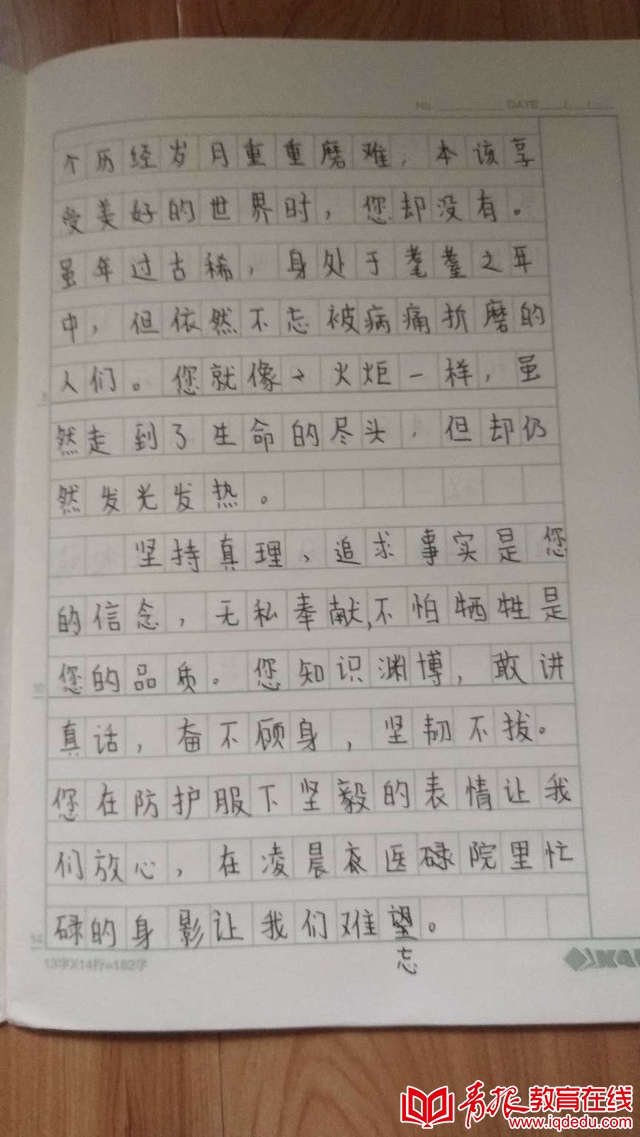 No. DATE / /
个历经岁月重重磨难，本该享
受美好的世界时，您却没有。
虽年过古稀，身处于耄耋之年
中，但依然不忘被病痛折磨的
人们。您就像火炬一样，虽
然走到了生命的尽头，但却仍
然发光发热。
坚持真理、追求事实是您
的信念，无私奉献，不怕牺牲是
您的品质。您知识渊博，敢讲
真话，奋不顾身，坚韧不拔。
您在防护服下坚毅的表情让我
们放心，在凌晨医碌院里忙
碌的身影让我们难望。
忘
13字X14行=182字
青报教育在线
www.iqdedu.com